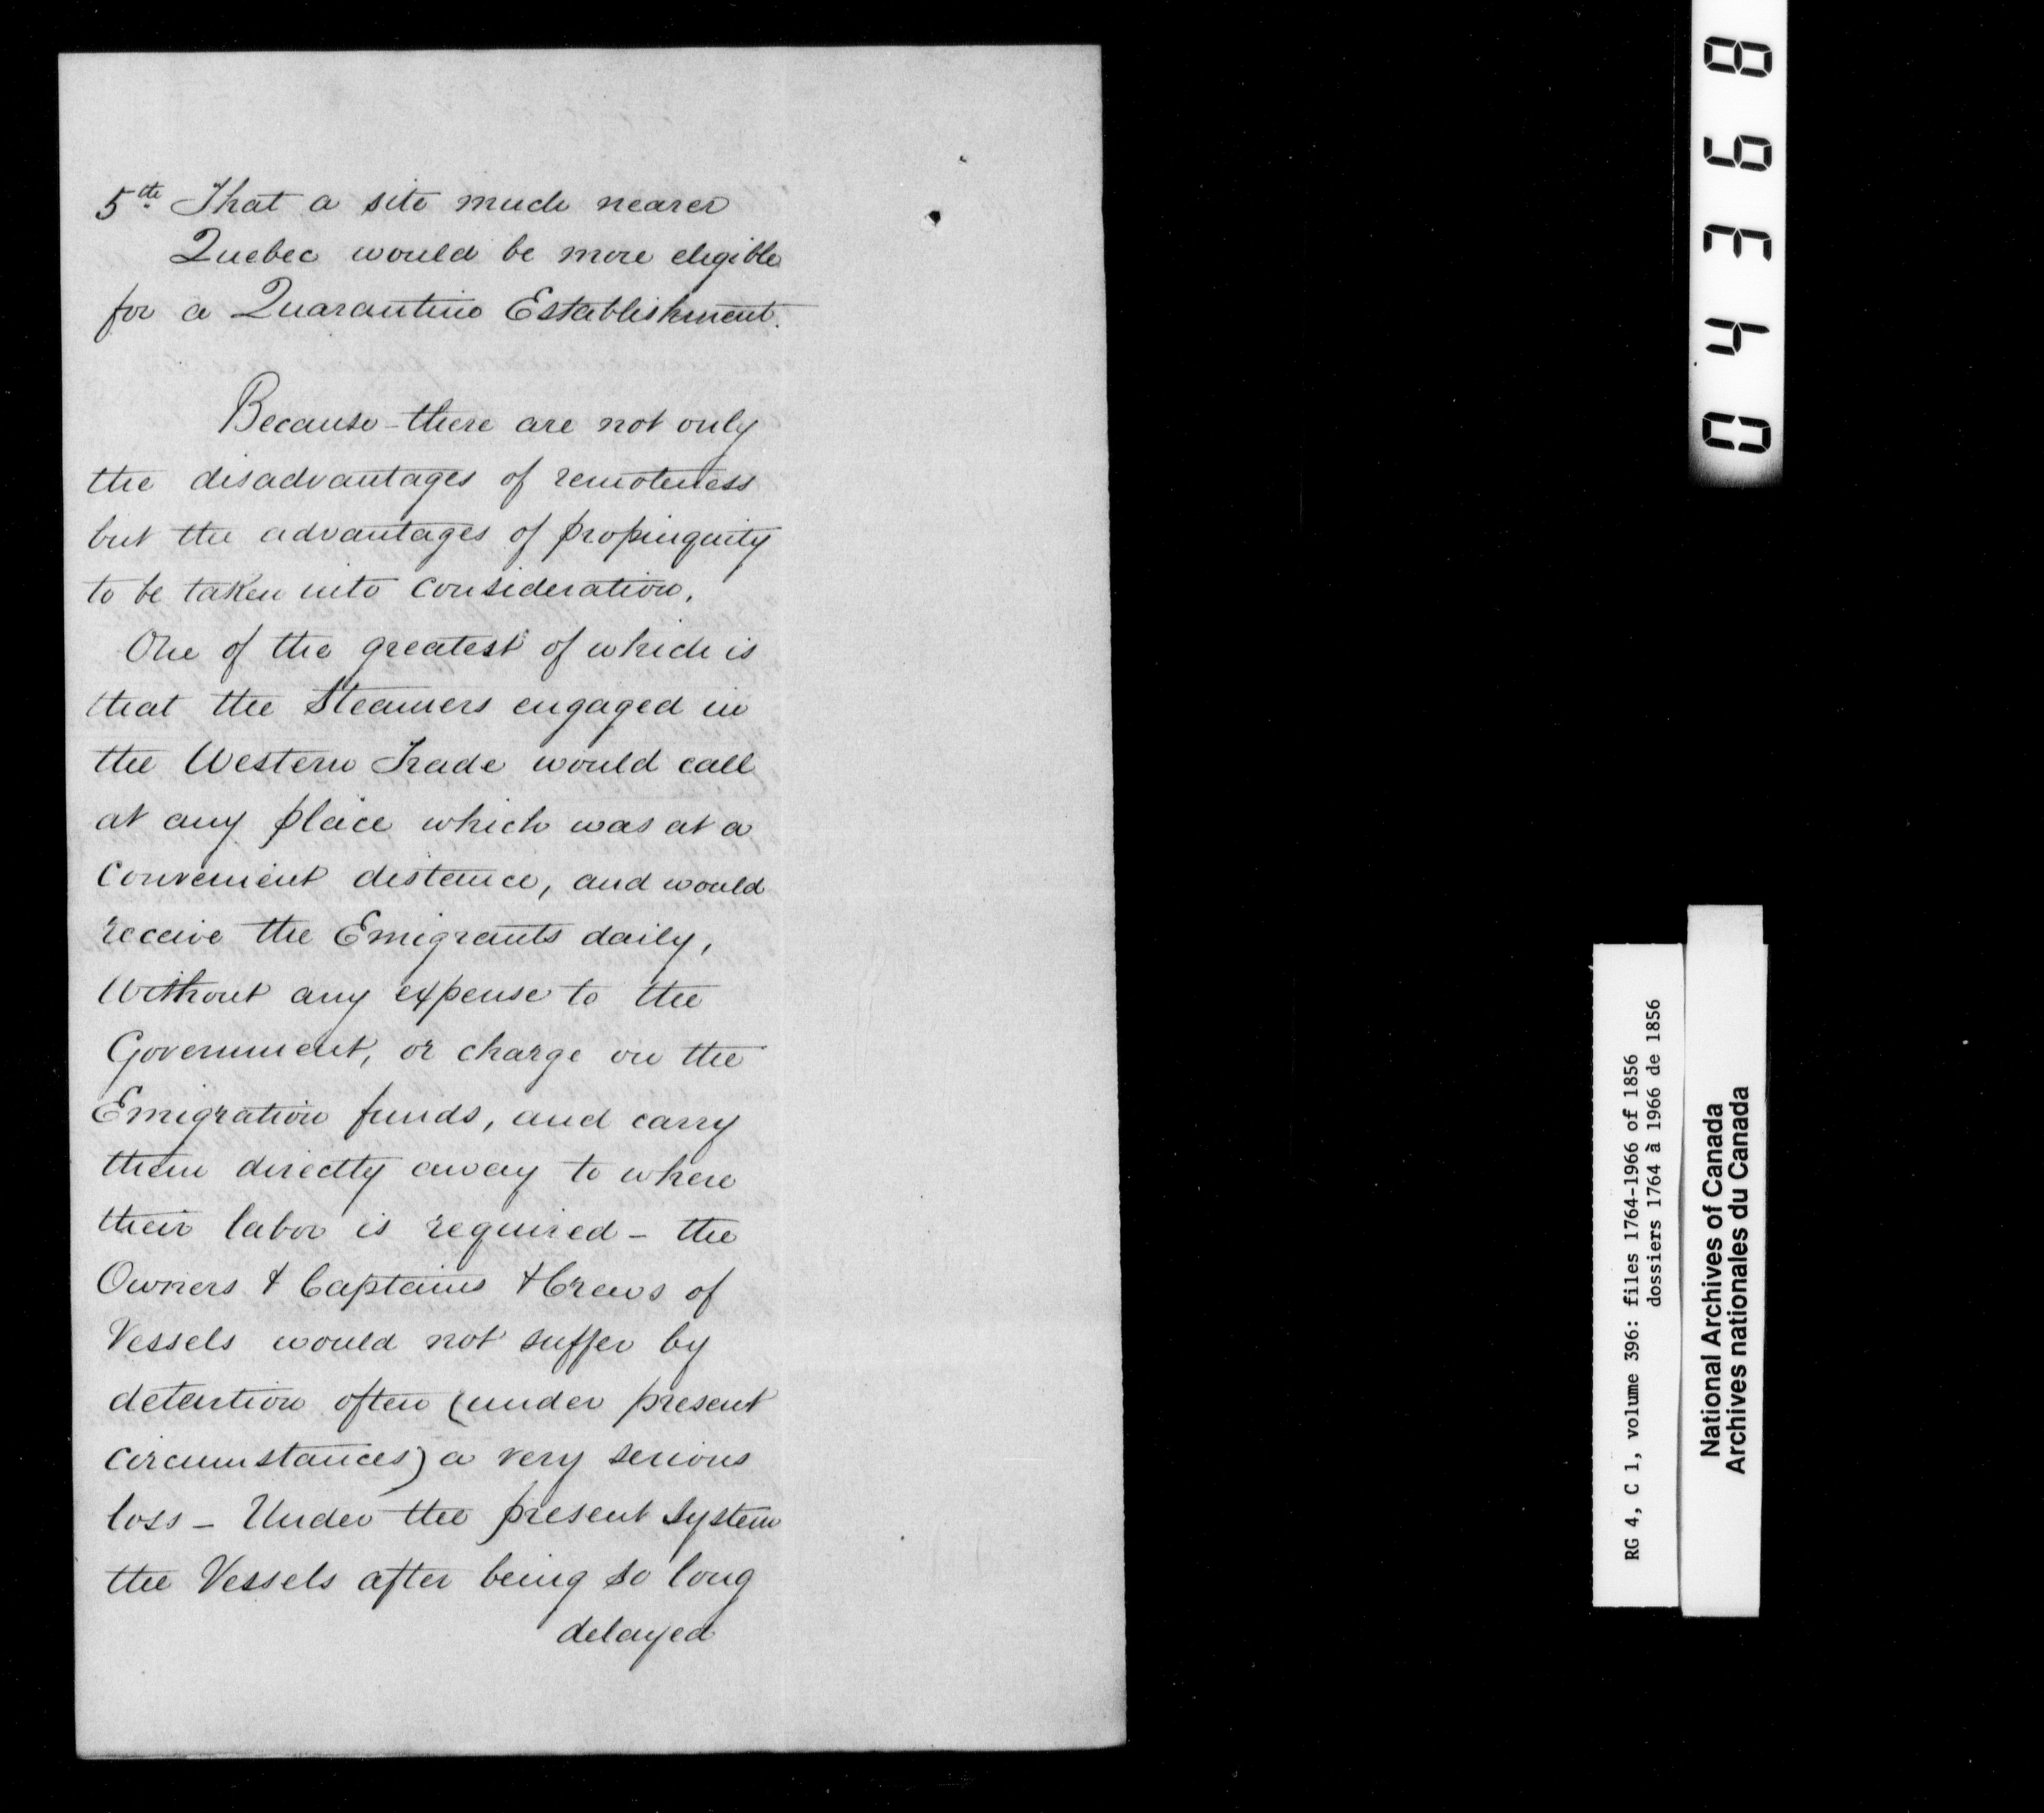 5th That a site much nearer
Quebec would be more eligible
for a Quarantine Establishment.
Because there are not only
the disadvantages of remoteness
but the advantages of propinquity
to be taken into consideration.
One of the greatest of which is
that the Steamers engaged in
the Western Trade would call
at any place which was at a
convenient distance, and would
receive the Emigrants daily,
Without any expense to the
Government, or charge on the
Emigration funds, and carry
them directly away to where
their labor is required – the
Owners & Captains & Crews of
Vessels would not suffer by
detention often (under present
circumstances) a very serious
loss – Under the present system
the Vessels after being so long
delayed
04368
RG 4, C 1, volume 396: files 1764-1966 of 1856
dossiers 1764 à 1966 de 1856
National Archives of Canada
Archives nationales du Canada